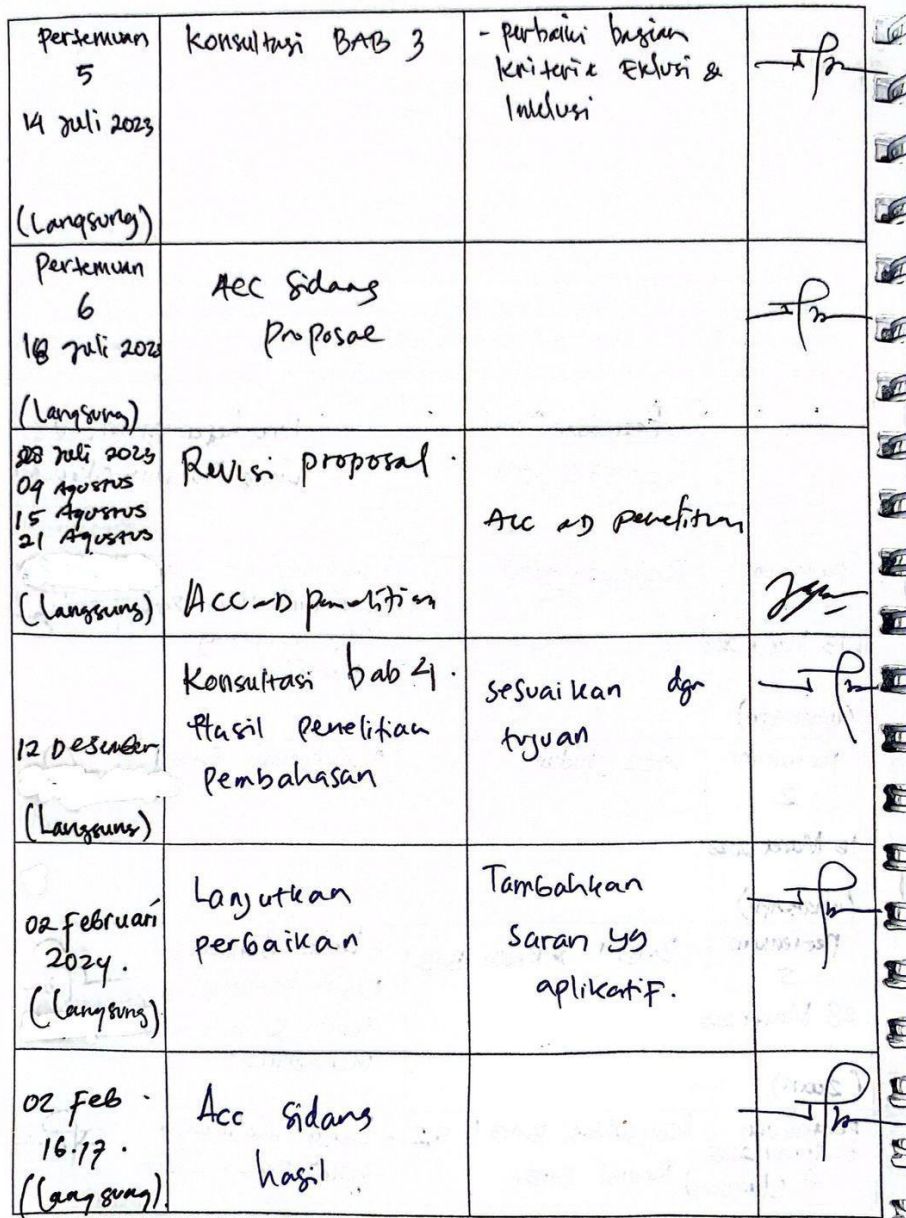 Pertemuan
5
14 Juli 2023
(Langsung)
Konsultasi BAB 3
- perbaiki bagian
kriteria Eklusi &
Inklusi
Pertemuan
6
18 Juli 2023
(Langsung)
Acc Sidang
proposal
28 Juli 2023
09 Agustus
15 Agustus
21 Agustus
(Langsung)
Revisi proposal.
ACC → penelitian
Acc → penelitian
12 Desember
(Langsung)
Konsultasi bab 4.
Hasil penelitian
pembahasan
sesuaikan dgn
tujuan
02 Februari
2024.
(Langsung)
Lanjutkan
perbaikan
Tambahkan
Saran yg
aplikatif.
02 Feb.
16.17.
(Langsung)
Acc sidang
hasil